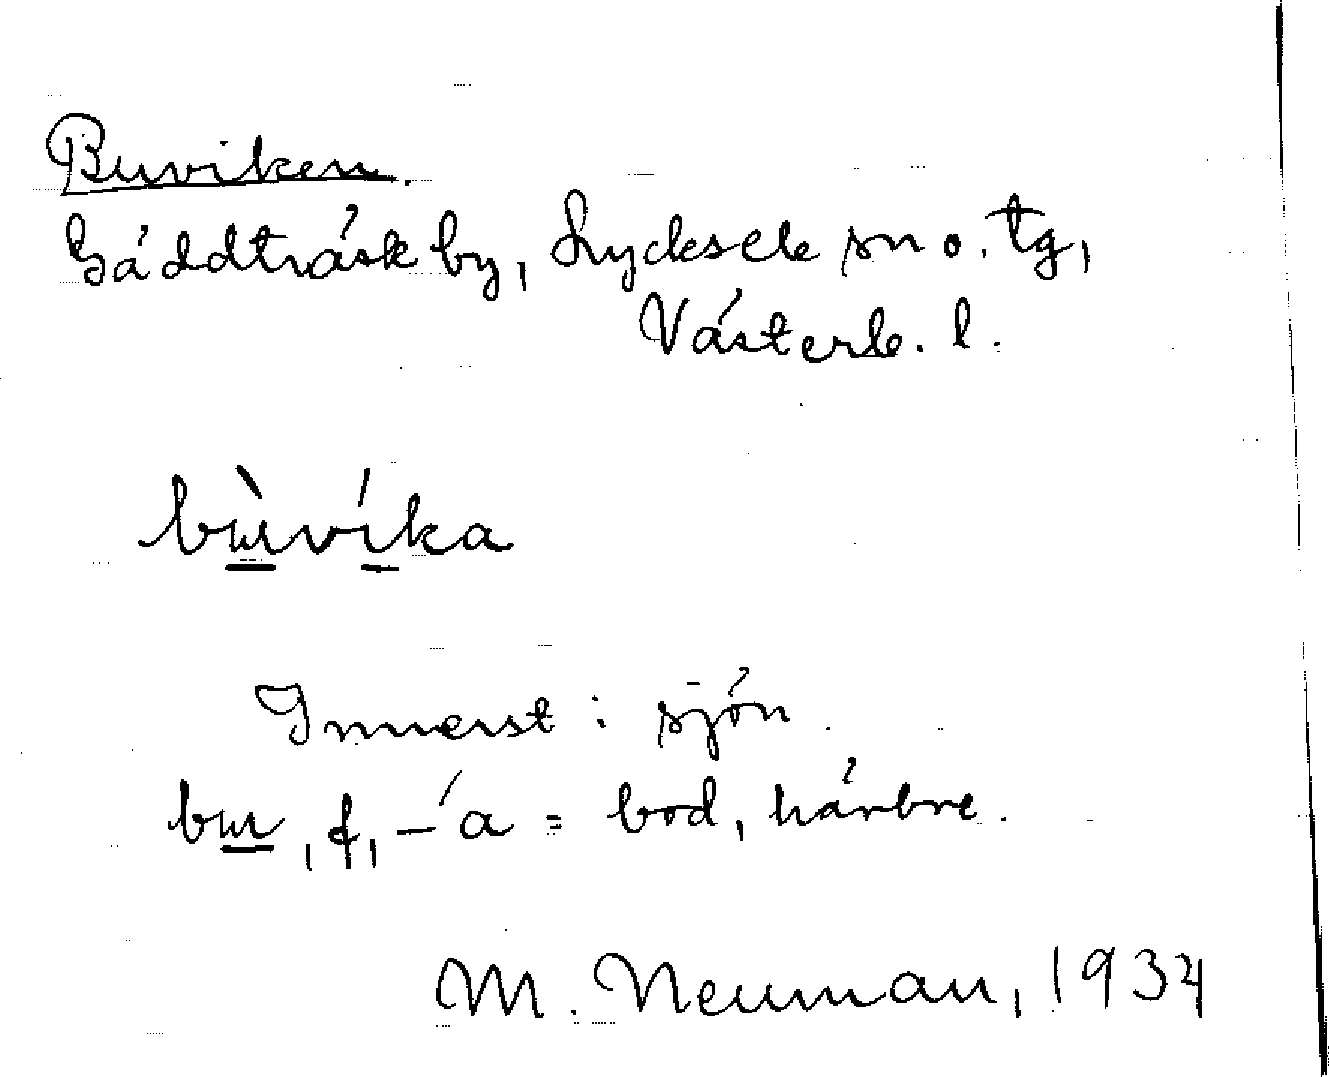 Buviken.
Gäddträsk by, Lycksele sn o. tg,
Västerb. l.
bùvíka
Innerst i sjön.
bu, f, -´a = bod, härbre.
M. Neuman, 1934